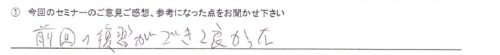 ① 今回のセミナーのご意見ご感想、参考になった点をお聞かせ下さい
前回の復習ができて良かった